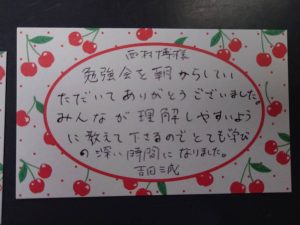 西村博様
勉強会を朝からしてい
ただいてありがとうございました。
みんなが理解しやすいよう
に教えて下さるのでとても学び
の深い時間になりました。
吉田